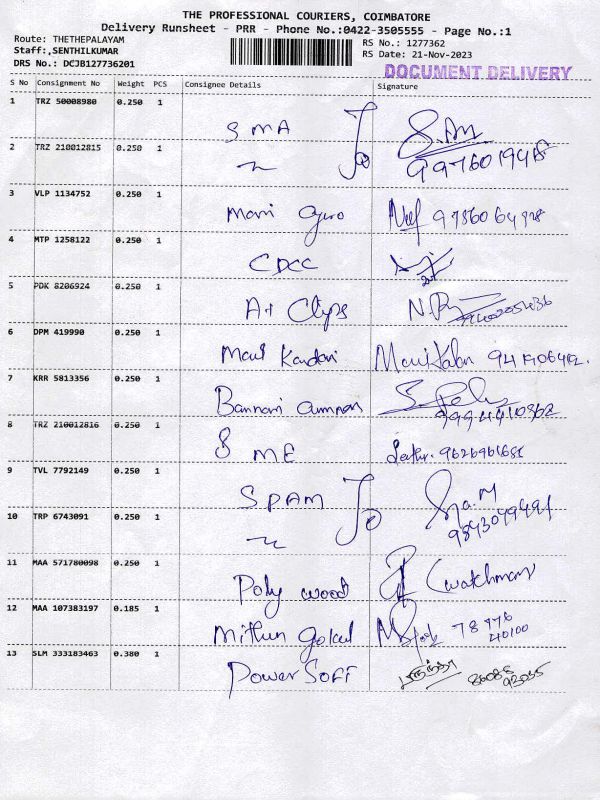 THE PROFESSIONAL COURIERS, COIMBATORE
Delivery Runsheet - PRR - Phone No.:0422-3505555 - Page No.:1
Route: THETHEPALAYAM
Staff:,SENTHILKUMAR
DRS No.: DCJB127736201
RS No.: 1277362
RS Date: 21-Nov-2023
DOCUMENT DELIVERY
S No Consignment No Weight PCS Consignee Details Signature
1 TRZ 50008980 0.250 1 SMA
2 TRZ 210012815 0.250 1
3 VLP 1134752 0.250 1
4 MTP 1258122 0.250 1 CDCC
5 PDK 8206924 0.250 1 A1 Clips
6 DPM 419990 0.250 1
7 KRR 5813356 0.250 1 Bannari amman
8 TRZ 210012816 0.250 1 SME 9626961651
9 TVL 7792149 0.250 1 SPAM
10 TRP 6743091 0.250 1
11 MAA 571780098 0.250 1 Poly wood (watchman
12 MAA 107383197 0.185 1 Mithun gokul
13 SLM 333183463 0.380 1 Power Soft